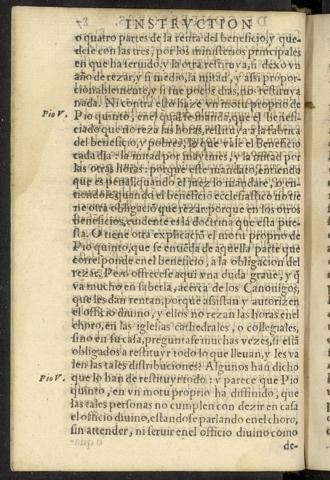 78 INSTRVCTION
o quatro partes de la renta del beneficio, y que-
dese con las tres, por los ministerios principales
en que ha seruido, y la otra restituya, si dexo vn
año de rezar, y si medio, la mitad, y assi propor-
cionablemente, y si fue pocos dias, no restituya
nada. Ni contra esto haze vn motu proprio de
Pio V. Pio quinto, en el qual se manda, que el benefi-
ciado que no reza las horas, restituya a la fabrica
del beneficio, y pobres, lo que vale el beneficio
cada dia: la mitad por maytines, y la mitad por
las otras horas: porque este mandato, entiendo
que es penal, quando el juez lo mandare, o en-
tiendo se quando el beneficio ecclesiastico no tie
ne otra obligació que rezar: porque en los otros
beneficios, euidente es la doctrina que esta pue-
sta. O tiene otra explicació el motu proprio de
Pio quinto, que se entiéda de aquella parte que
corresponde en el beneficio, a la obligacion del
rezar. Pero offrecese aqui vna duda graue, y q̃
va mucho en saberla, acerca de los Canonigos,
que les dan renta, porque assistan y autorizen
el officio diuino, y ellos no rezan las horas en el
choro, en las iglesias cathedrales, o collegiales,
sino en su casa, preguntase muchas vezes, si està
obligados a restituyr todo lo que lleuan, y les va
len las tales distribuciones? Algunos han dicho
Pio V. que lo han de restituyr todo: y parece que Pio
quinto, en vn motu proprio ha diffinido, que
las tales personas no cumplen con dezir en casa
el officio diuino, estandose parlando en el choro,
sin attender, ni seruir en el officio diuino como
de-